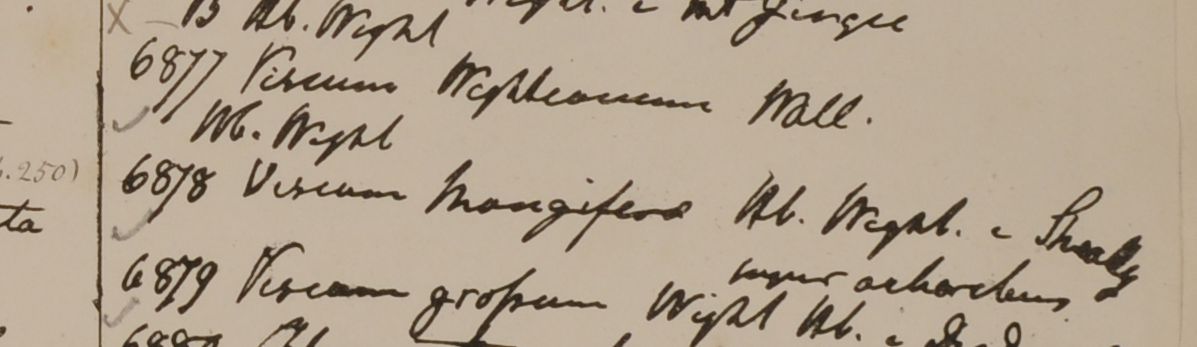 B Hb. Wight Wight. e Mt Gingee
6877 Viscum Wightianum Wall.
Hb. Wight
6878 Viscum Mangiferae Hb. Wight. e
super arboribus
6879 Viscum grossum Wight Hb. e
.250)
ta